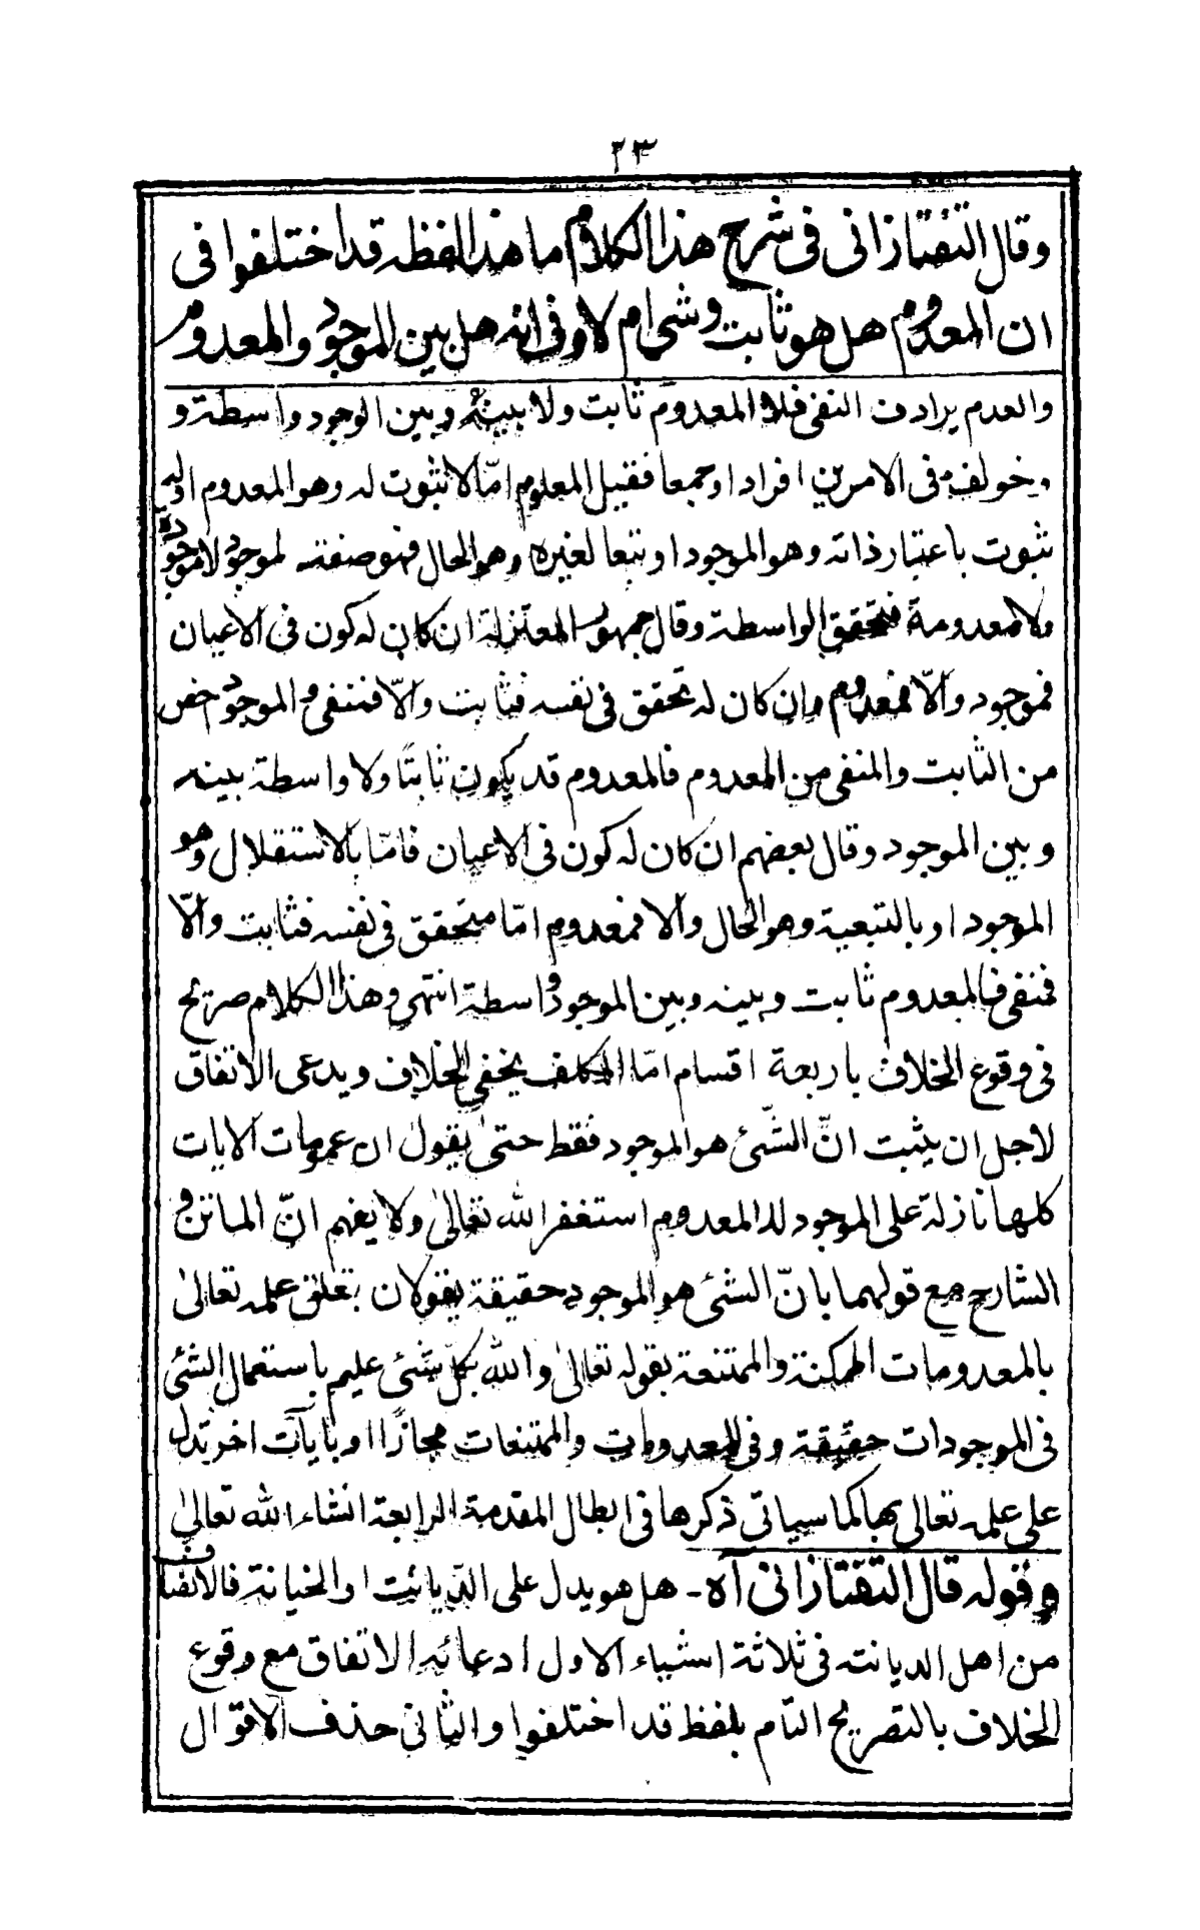 ٢٣
وقال التفتازانى فى شرح هذا الكلام ما هذا لفظه قد اختلفوا فى
ان المعدوم هل هو ثابت وشئ ام لا وفى انه هل بين الموجود والمعدوم
والعدم يرادف النفى فلا المعدوم ثابت ولا بينه وبين الوجود واسطة و
خولف فى الامرين افرادا وجمعا فقيل المعلوم امّا لا ثبوت له وهو المعدوم اوله
ثبوت باعتبار ذاته وهو الموجود او تبعا لغيره وهو الحال فهو صفته لموجود لا موجودة
ولا معدومة فيتحقق الواسطة وقال جمهور المعتزلة ان كان له كون فى الاعيان
فموجود والّا فمعدوم وان كان له تحقق فى نفسه فثابت والّا فمنفى و الموجود خص
من الثابت والمنفى من المعدوم فالمعدوم قد يكون ثابتًا ولا واسطة بينه
وبين الموجود وقال بعضهم ان كان له كون فى الاعيان فامّا بالاستقلال وهو
الموجود او بالتبعية وهو الحال والا فمعدوم امّا متحقق فى نفسه فثابت والّا
فمنفى فالمعدوم ثابت وبينه وبين الموجود واسطة انتهى وهذا الكلام صريح
فى وقوع الخلاف باربعة اقسام امّا المكلف يخفى الخلاف ويدعى الاتفاق
لاجل ان يثبت انّ الشّئ هو الموجود فقط حتى يقول ان عمومات الايات
كلها نازلة على الموجود لا المعدوم استغفر الله تعالىٰ ولا يفهم انّ الماتن و
الشارح مع قولهما بانّ الشئ هو الموجود حقيقة يقولان بتعلق علمه تعالىٰ
بالمعدومات الممكنة والممتنعة بقوله تعالىٰ والله بكلّ شئ عليم باستعمال الشئ
فى الموجودات حقيقة وفى المعدومات والممتنعات مجازًا او بايآت اخر تدل
على علمه تعالى بها كما سياتى ذكرها فى ابطال المقدمة الرابعة انشاء الله تعالىٰ
وقوله قال التفتازانى آه - هل هو يدل على الدّيانت او الخيانة فالانصاف
من اهل الديانته فى ثلاثة اشياء الاول ادعائه الاتفاق مع وقوع
الخلاف بالتصريح التام بلفظ قد اختلفوا والثانى حذف الاقوال